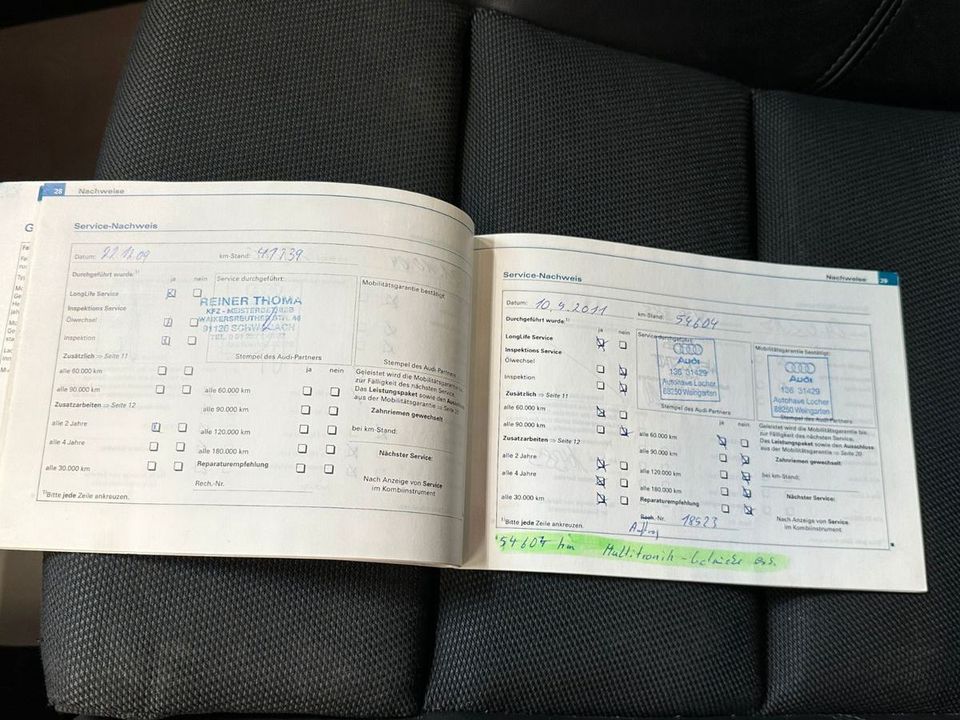 28 Nachweise
Service-Nachweis
Datum: 22.12.09 km-Stand: 41739
Durchgeführt wurde:¹⁾ ja nein Service durchgeführt: Mobilitätsgarantie bestätigt:
LongLife Service
REINER THOMA
KFZ - MEISTERBETRIEB
91126 SCHWABACH
Inspektions Service
Ölwechsel
Inspektion
Stempel des Audi-Partners Stempel des Audi-Partners
Zusätzlich ⇒ Seite 11
alle 60.000 km
alle 90.000 km
Zusatzarbeiten ⇒ Seite 12
alle 2 Jahre
alle 4 Jahre
alle 30.000 km
ja nein
alle 60.000 km
alle 90.000 km
alle 120.000 km
alle 180.000 km
Reparaturempfehlung
Rech.-Nr.
Geleistet wird die Mobilitätsgarantie bis
zur Fälligkeit des nächsten Service.
Das Leistungspaket sowie den Ausschluss
aus der Mobilitätsgarantie ⇒ Seite 20
Zahnriemen gewechselt
bei km-Stand:
Nächster Service:
Nach Anzeige von Service
im Kombiinstrument
¹⁾Bitte jede Zeile ankreuzen.
Nachweise 29
Service-Nachweis
Datum: 10.5.2011 km-Stand: 54604
Durchgeführt wurde:¹⁾ ja nein Service durchgeführt: Mobilitätsgarantie bestätigt:
LongLife Service
Inspektions Service
Ölwechsel
Inspektion
Audi
136 31429
Autohaus Locher
88250 Weingarten
Stempel des Audi-Partners
Audi
136 31429
Autohaus Locher
88250 Weingarten
Stempel des Audi-Partners
Zusätzlich ⇒ Seite 11
alle 60.000 km
alle 90.000 km
Zusatzarbeiten ⇒ Seite 12
alle 2 Jahre
alle 4 Jahre
alle 30.000 km
ja nein
alle 60.000 km
alle 90.000 km
alle 120.000 km
alle 180.000 km
Reparaturempfehlung
Rech.-Nr. 18523
Auftrag
Geleistet wird die Mobilitätsgarantie bis
zur Fälligkeit des nächsten Service.
Das Leistungspaket sowie den Ausschluss
aus der Mobilitätsgarantie ⇒ Seite 20
Zahnriemen gewechselt:
bei km-Stand:
Nächster Service:
Nach Anzeige von Service
im Kombiinstrument.
¹⁾Bitte jede Zeile ankreuzen.
54604 km Multitronik